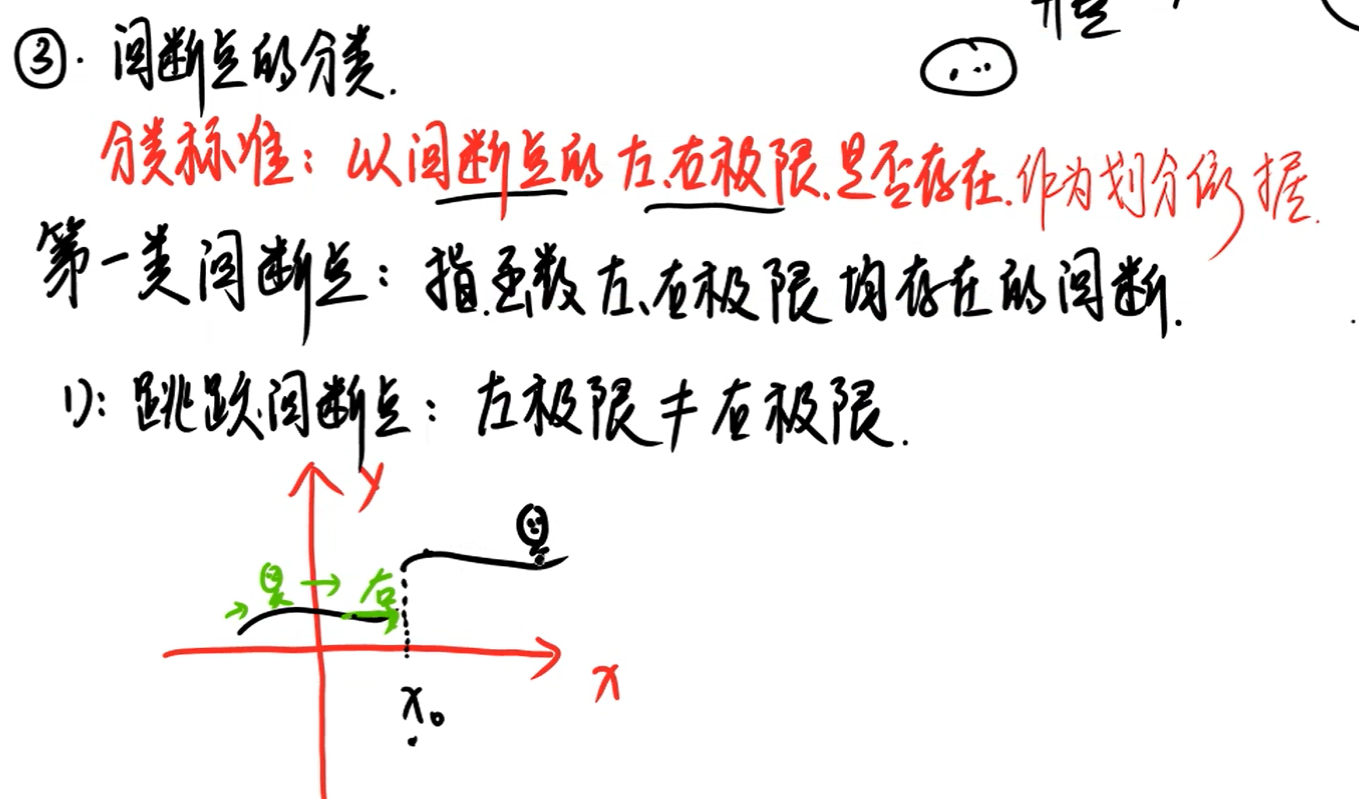 ③. 间断点的分类.
分类标准：以间断点的左、右极限是否存在.作为划分依据.
第一类间断点：指函数左、右极限均存在的间断.
1)：跳跃间断点：左极限≠右极限.
y
右
x
x₀